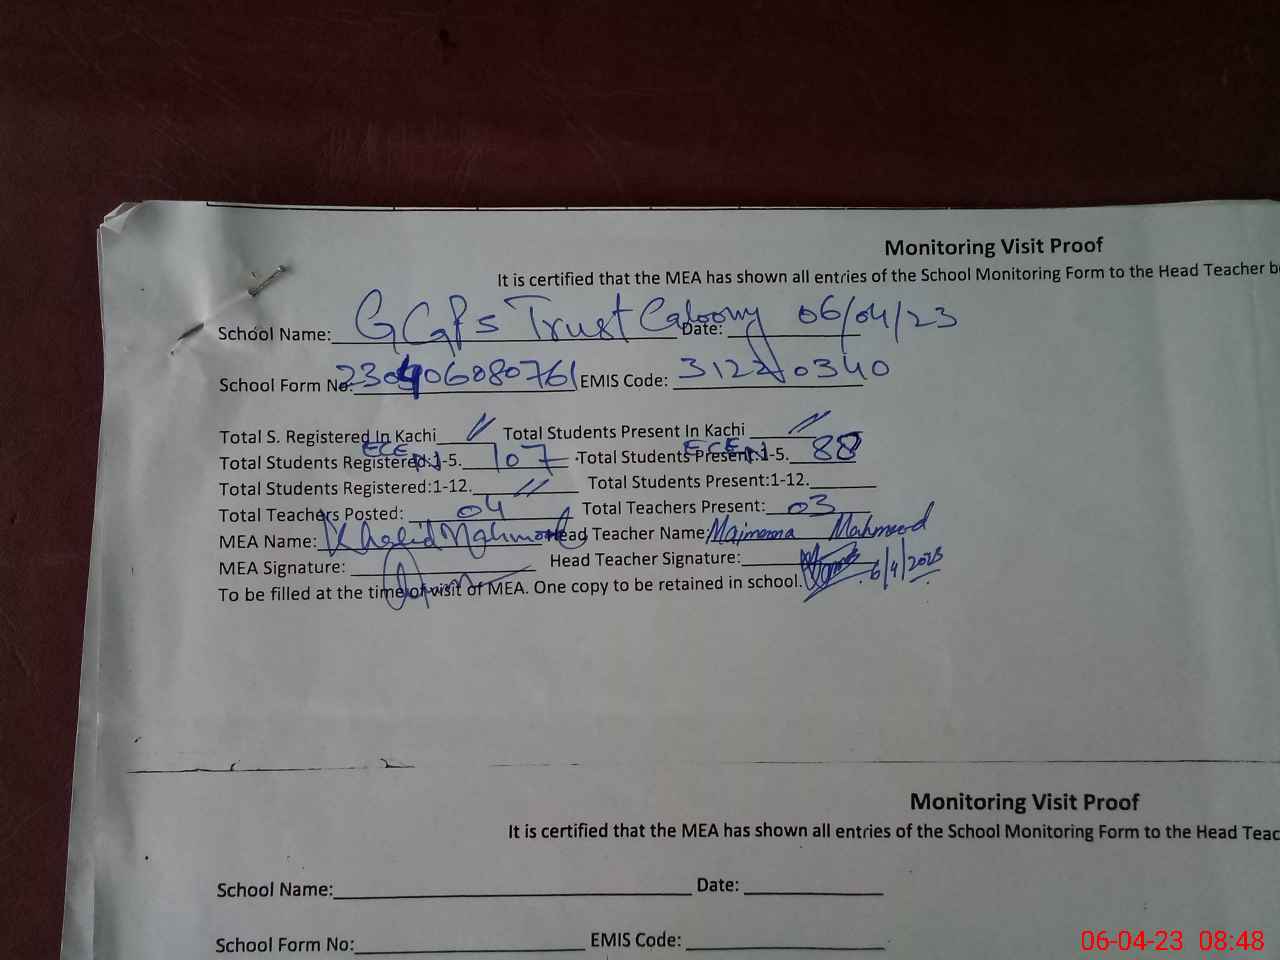 Monitoring Visit Proof
It is certified that the MEA has shown all entries of the School Monitoring Form to the Head Teacher b
School Name: GGPS Trust Caloony Date: 06/04/23
School Form No: 230406080761 EMIS Code: 31220340
Total S. Registered In Kachi // Total Students Present In Kachi //
Total Students Registered: ECE 1-5. 107 Total Students Present: ECE 1-5. 88
Total Students Registered:1-12. // Total Students Present:1-12.
Total Teachers Posted: 04 Total Teachers Present: 03
MEA Name: Khalid Mahmood Head Teacher Name: Maimoona Mahmood
MEA Signature: Head Teacher Signature: 6/4/2023
To be filled at the time of visit of MEA. One copy to be retained in school.
Monitoring Visit Proof
It is certified that the MEA has shown all entries of the School Monitoring Form to the Head Teac
School Name: Date:
School Form No: EMIS Code:
06-04-23 08:48